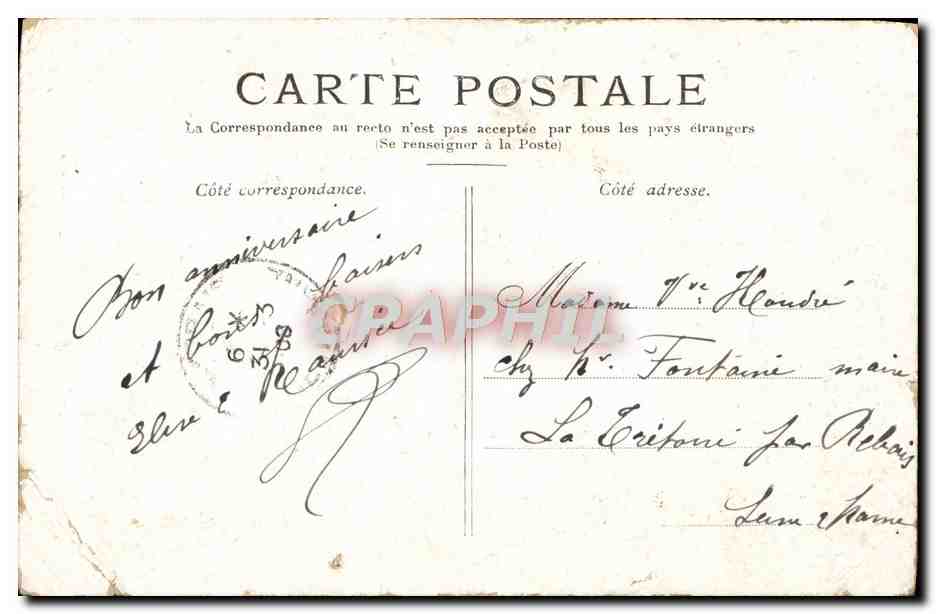 CARTE POSTALE
La Correspondance au recto n'est pas acceptée par tous les pays étrangers
(Se renseigner à la Poste)
Côté correspondance.
Bon anniversaire
et bons baisers
Maurice
6
31
08
Côté adresse.
Madame Vve
chez Mr. Fontaine maire
La par Rebais
Seine & Marne
CPAPHIL